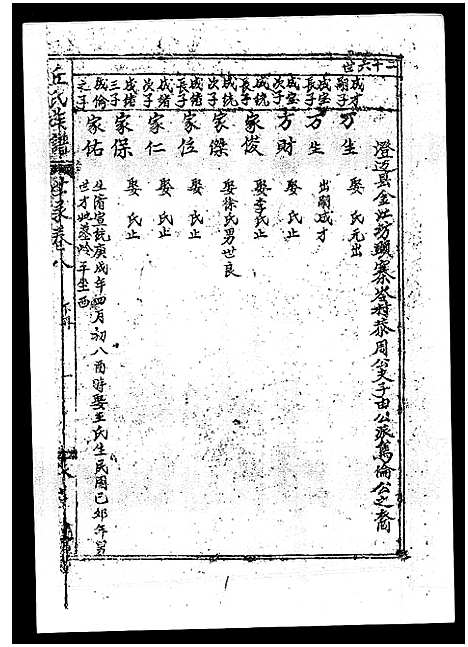 二十六世
澄迈县金江坊頭寨峇村恭周公支子由公派篤倫公之裔
成才嗣子 万生 娶 氏元出
成宝長子 万生 出嗣成才
成宝次子 方財 娶 氏止
成统長子 家俊 娶李氏止
成统次子 家傑 娶徐氏男世良
成绪長子 家位 娶 氏止
成绪次子 家仁 娶 氏止
成绪三子 家保 娶 氏止
成倫之子 家佑 生清宣統庚戌年四月初八酉時娶王氏生民國己卯年男
世才 坐西
丘氏族譜 附录卷八
1